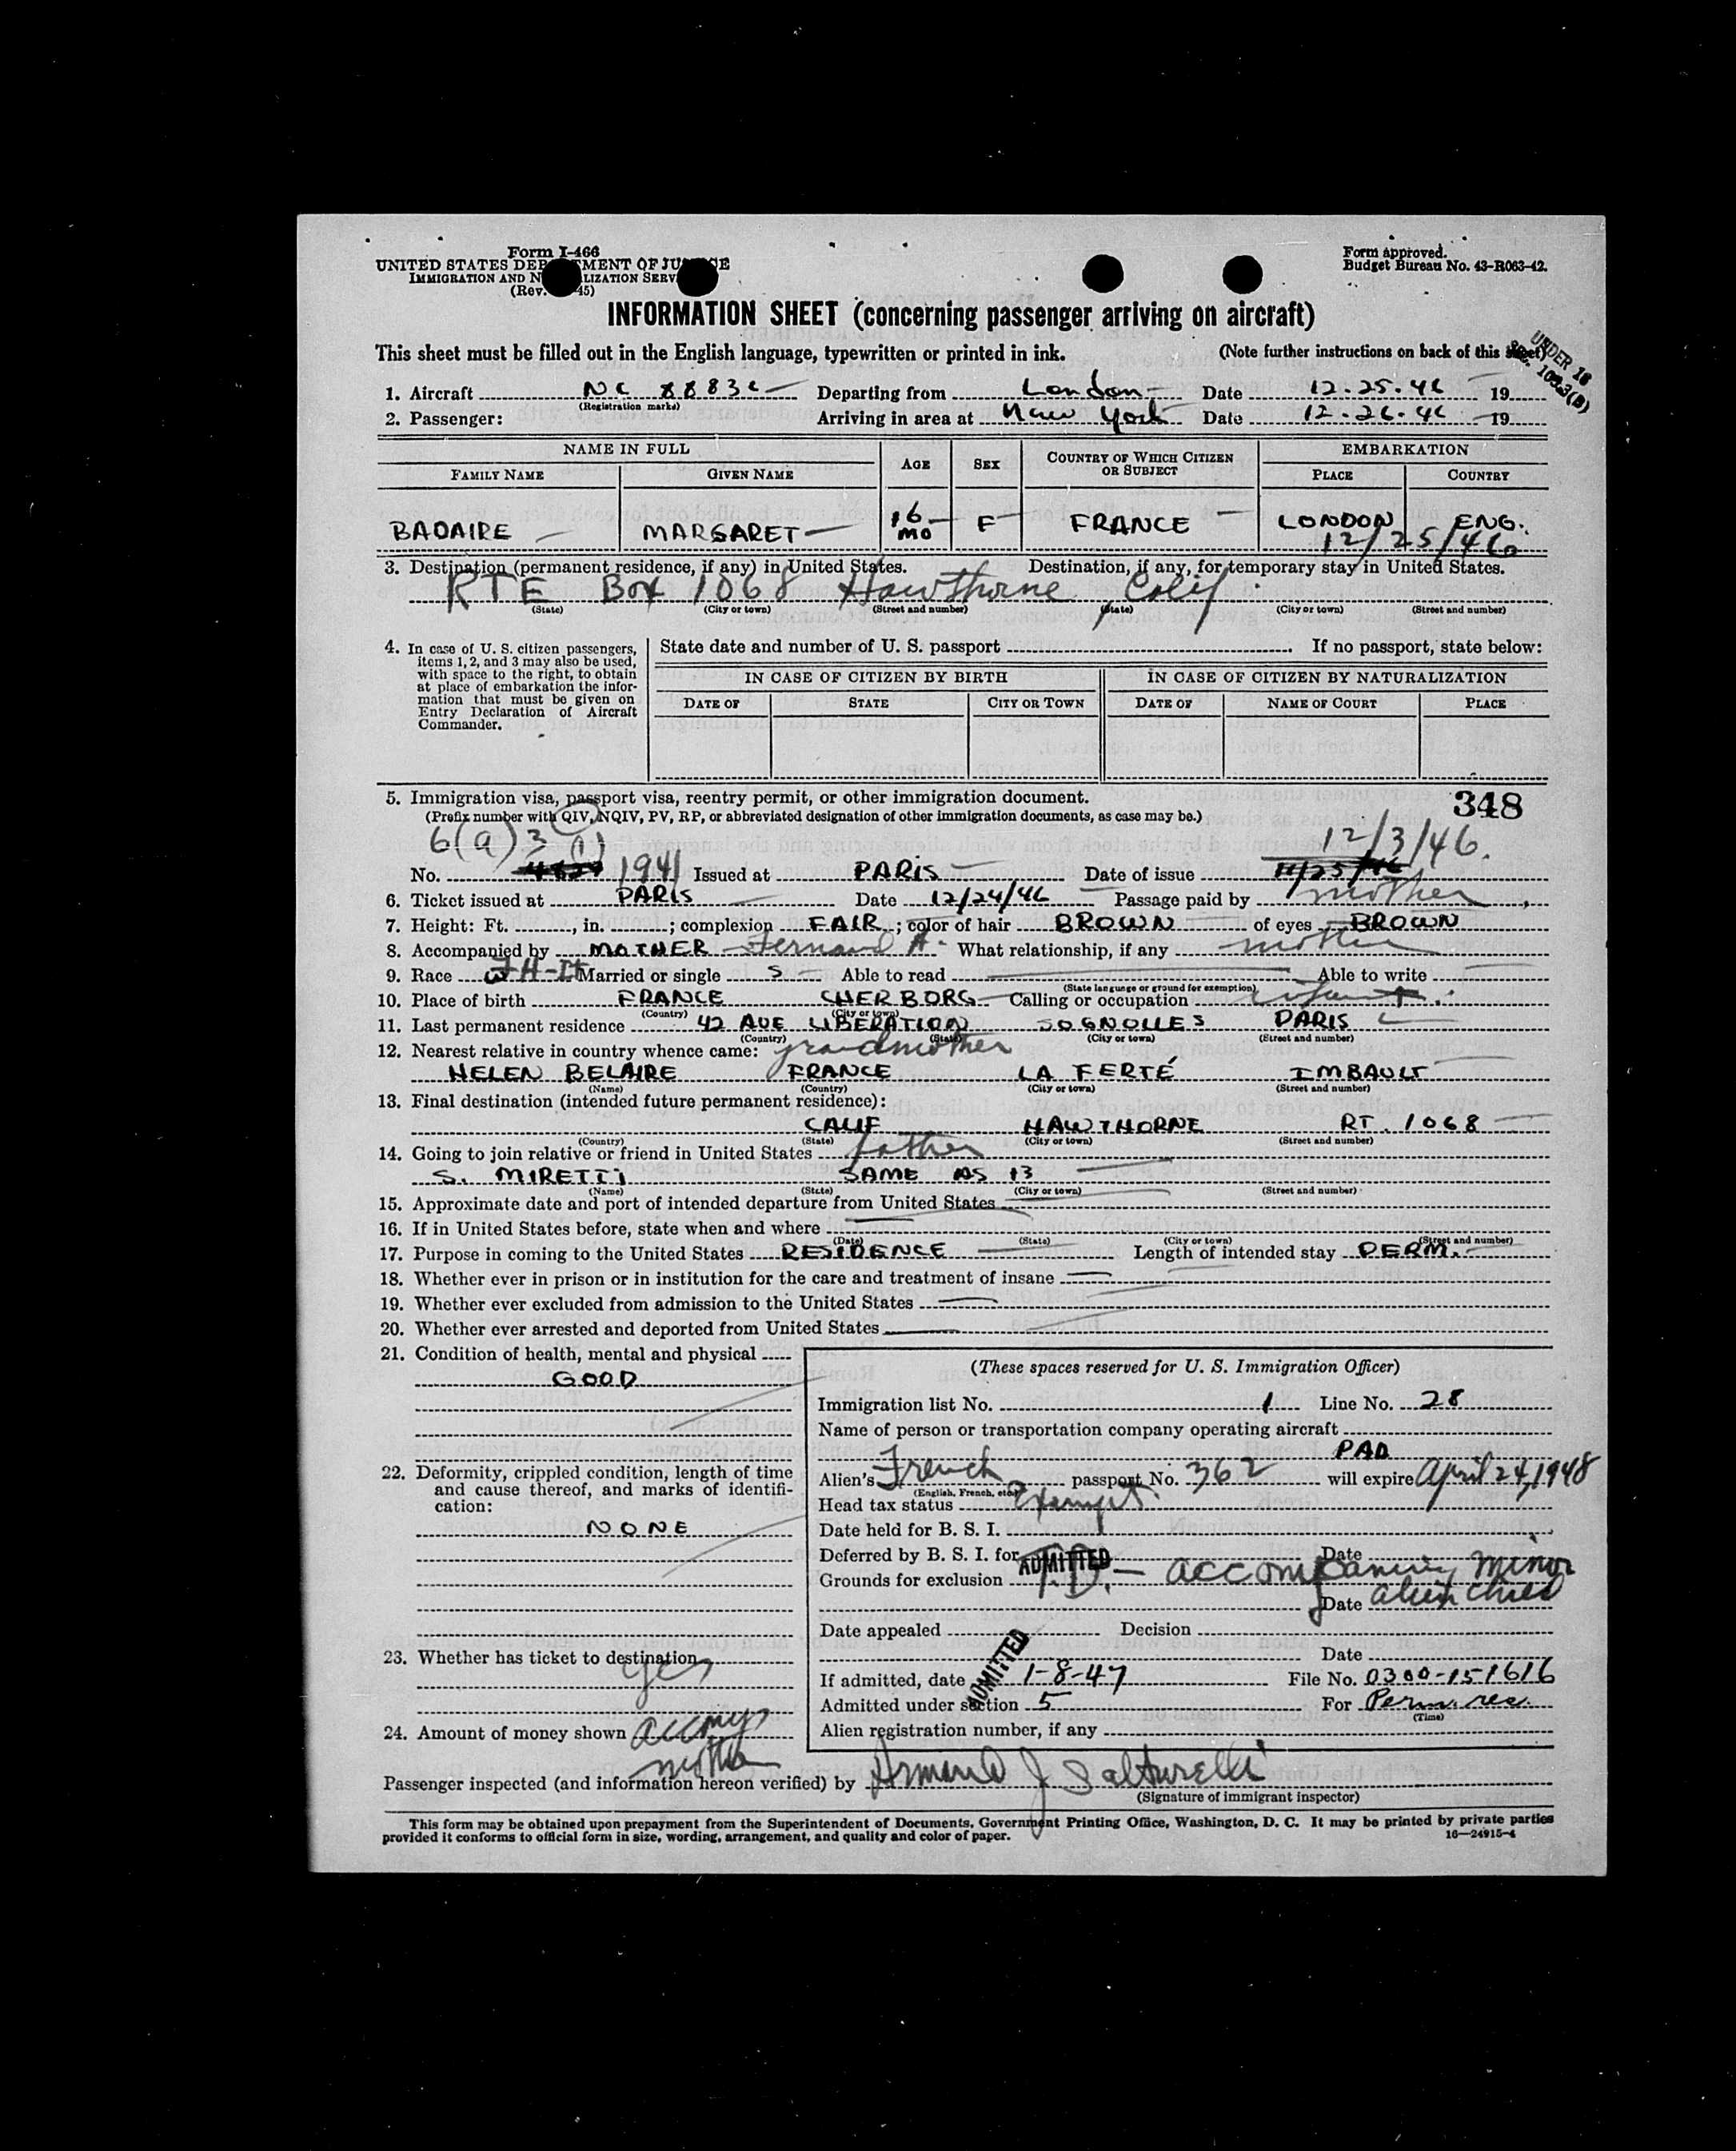 Form I-466
UNITED STATES DEP MENT OF JU E
IMMIGRATION AND N LIZATION SERV
(Rev. 45)
Form approved.
Budget Bureau No. 43-R063-42.
INFORMATION SHEET (concerning passenger arriving on aircraft)
This sheet must be filled out in the English language, typewritten or printed in ink. (Note further instructions on back of this sheet)
UNDER 16
1. Aircraft NC 8883C Departing from London Date 12-25-46 19
(Registration marks)
2. Passenger: Arriving in area at New York Date 12-26-46 19
NAME IN FULL AGE SEX COUNTRY OF WHICH CITIZEN OR SUBJECT EMBARKATION
FAMILY NAME GIVEN NAME PLACE COUNTRY
BADAIRE MARGARET 16 MO F FRANCE LONDON ENG.
12/25/46
3. Destination (permanent residence, if any) in United States. Destination, if any, for temporary stay in United States.
RTE Box 1068 Hawthorne, Calif
(State) (City or town) (Street and number) (State) (City or town) (Street and number)
4. In case of U. S. citizen passengers, items 1, 2, and 3 may also be used, with space to the right, to obtain at place of embarkation the information that must be given on Entry Declaration of Aircraft Commander.
State date and number of U. S. passport If no passport, state below:
IN CASE OF CITIZEN BY BIRTH IN CASE OF CITIZEN BY NATURALIZATION
DATE OF STATE CITY OR TOWN DATE OF NAME OF COURT PLACE
5. Immigration visa, passport visa, reentry permit, or other immigration document. 348
(Prefix number with QIV, NQIV, PV, RP, or abbreviated designation of other immigration documents, as case may be.)
6(a)3 (1) 12/3/46.
No. 1941 Issued at PARIS Date of issue 11/25/46
6. Ticket issued at PARIS Date 12/24/46 Passage paid by mother
7. Height: Ft. , in. ; complexion FAIR ; color of hair BROWN of eyes BROWN
8. Accompanied by MOTHER Fernand A. What relationship, if any mother
9. Race W Married or single S Able to read Able to write
(State language or ground for exemption)
10. Place of birth FRANCE CHERBORG Calling or occupation infant
(Country) (City or town)
11. Last permanent residence 42 AUE LIBERATION SOGNOLLES PARIS
(Country) (State) (City or town) (Street and number)
12. Nearest relative in country whence came: grandmother
HELEN BELAIRE FRANCE LA FERTÉ IMBAULT
(Name) (Country) (City or town) (Street and number)
13. Final destination (intended future permanent residence):
CALIF HAWTHORNE RT. 1068
(Country) (State) (City or town) (Street and number)
14. Going to join relative or friend in United States father
S. MIRETTI SAME AS 13
(Name) (State) (City or town) (Street and number)
15. Approximate date and port of intended departure from United States
16. If in United States before, state when and where
(Date) (State) (City or town) (Street and number)
17. Purpose in coming to the United States RESIDENCE Length of intended stay PERM.
18. Whether ever in prison or in institution for the care and treatment of insane
19. Whether ever excluded from admission to the United States
20. Whether ever arrested and deported from United States
21. Condition of health, mental and physical
GOOD
22. Deformity, crippled condition, length of time and cause thereof, and marks of identification:
NONE
23. Whether has ticket to destination
yes
24. Amount of money shown accmys
mother
(These spaces reserved for U. S. Immigration Officer)
Immigration list No. 1 Line No. 28
Name of person or transportation company operating aircraft
PAA
Alien's French passport No. 362 will expire April 24, 1948
(English, French, etc.)
Head tax status Exempt.
Date held for B. S. I.
Deferred by B. S. I. for ADMITTED Date
Grounds for exclusion T.D. - accompanying minor
Date alien child
Date appealed Decision
Date
If admitted, date ADMITTED 1-8-47 File No. 0300-151616
Admitted under section 5 For Perm. res.
(Time)
Alien registration number, if any
Passenger inspected (and information hereon verified) by Armand J Salturelli
(Signature of immigrant inspector)
This form may be obtained upon prepayment from the Superintendent of Documents, Government Printing Office, Washington, D. C. It may be printed by private parties
provided it conforms to official form in size, wording, arrangement, and quality and color of paper. 16—24915-4